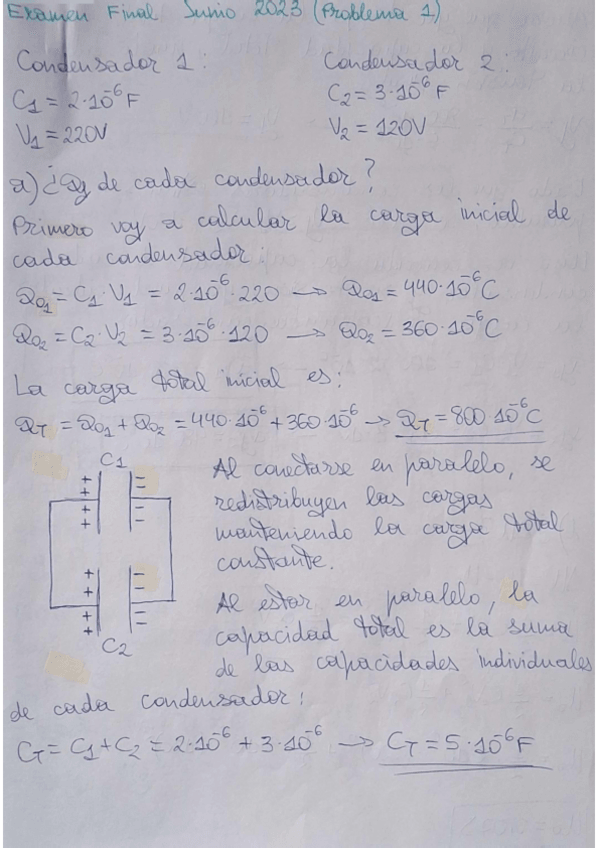 Examen Final Junio 2023 (Problema 1)
Condensador 1:
Condensador 2:
C₁ = 2·10⁻⁶ F
C₂ = 3·10⁻⁶ F
V₁ = 220V
V₂ = 120V
a) ¿Qf de cada condensador?
Primero voy a calcular la carga inicial de
cada condensador:
Q₀₁ = C₁·V₁ = 2·10⁻⁶·220 → Q₀₁ = 440·10⁻⁶C
Q₀₂ = C₂·V₂ = 3·10⁻⁶·120 → Q₀₂ = 360·10⁻⁶C
La carga total inicial es:
Q_T = Q₀₁ + Q₀₂ = 440·10⁻⁶ + 360·10⁻⁶ → Q_T = 800·10⁻⁶C
C1
+ + + +
− − − −
+ + + +
− − − −
C2
Al conectarse en paralelo, se
redistribuyen las cargas
manteniendo la carga total
constante.
Al estar en paralelo, la
capacidad total es la suma
de las capacidades individuales
de cada condensador:
C_T = C₁ + C₂ = 2·10⁻⁶ + 3·10⁻⁶ → C_T = 5·10⁻⁶F